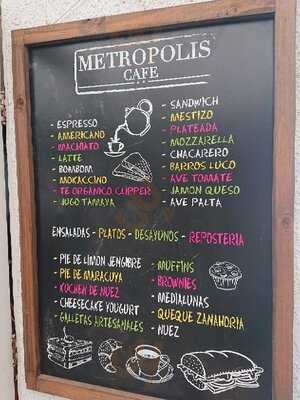 METROPOLIS
CAFE
- ESPRESSO
- AMERICANO
- MACHIATO
- LATTE
- BOMBOM
- MOKACCINO
- TE ORGANICO CLIPPER
- JUGO TAMAYA
- SANDWICH
- MESTIZO
- PLATEADA
- MOZZARELLA
- CHACARERO
- BARROS LUCO
- AVE TOMATE
- JAMON QUESO
- AVE PALTA
ENSALADAS - PLATOS - DESAYUNOS - REPOSTERIA
- PIE DE LIMON JENGIBRE
- PIE DE MARACUYA
- KUCHEN DE NUEZ
- CHEESECAKE YOUGURT
- GALLETAS ARTESANALES
- MUFFINS
- BROWNIES
- MEDIALUNAS
- QUEQUE ZANAHORIA
- NUEZ